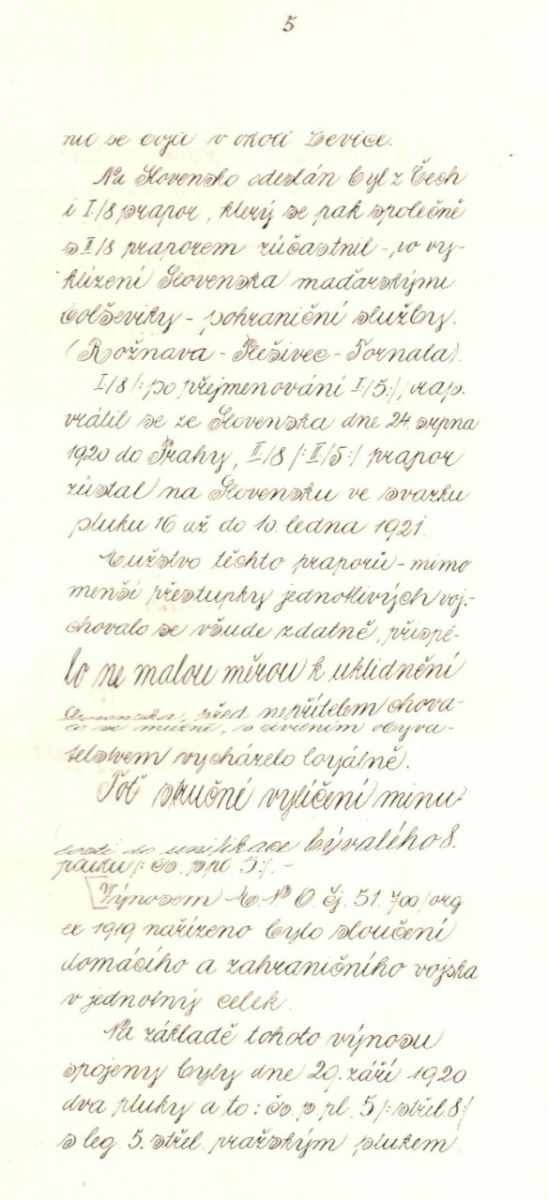 5
nil se bojů v okolí Levice.
Na Slovensko odeslán byl z Čech
i I/8 prapor, který se pak společně
s II/8 praporem zúčastnil -, po vy-
klizení Slovenska maďarskými
bolševiky - pohraniční služby.
(Rožnava - Plešivec - Tornala).
I/8 /: po přejmenování I/5:/, prap.
vrátil se ze Slovenska dne 24. srpna
1920 do Prahy, II/8 /: II/5:/ prapor
zůstal na Slovensku ve svazku
pluku 16 až do 10. ledna 1921.
Mužstvo těchto praporů - mimo
menší přestupky jednotlivých voj.-
chovalo se všude zdatně, přispě-
lo ne malou měrou k uklidnění
Slovenska, před nepřítelem chova-
lo se mužně, s civilním obyva-
telstvem vycházelo loyálně.
Toť stručné vylíčení minu-
losti do unifikace bývalého 8.
pluku /: čs. p. pl. 5:/. -
Výnosem M. N. O. čj. 51.700/org
ex 1919 nařízeno bylo sloučení
domácího a zahraničního vojska
v jednotný celek.
Na základě tohoto výnosu
spojeny byly dne 20. září 1920
dva pluky a to: čs. p. pl. 5 /: střel. 8:/
s leg. 5. střel. pražským plukem